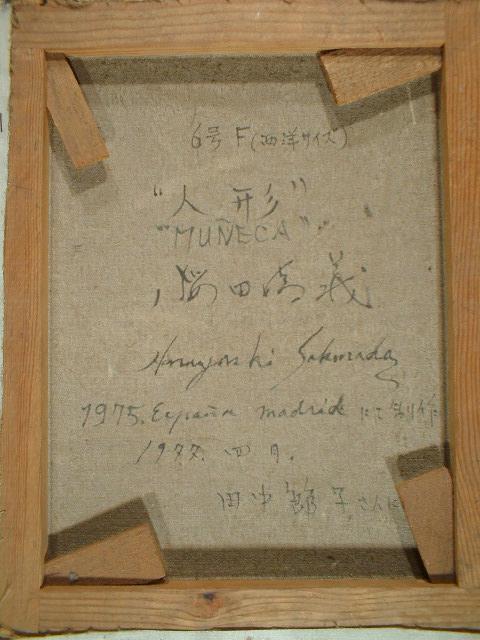 6号 F(西洋サイズ)
"人 形"
"MUÑECA"
桜田
Sakurada
1975. España madrid にて制作
1977. 四月.
田中 子さんに